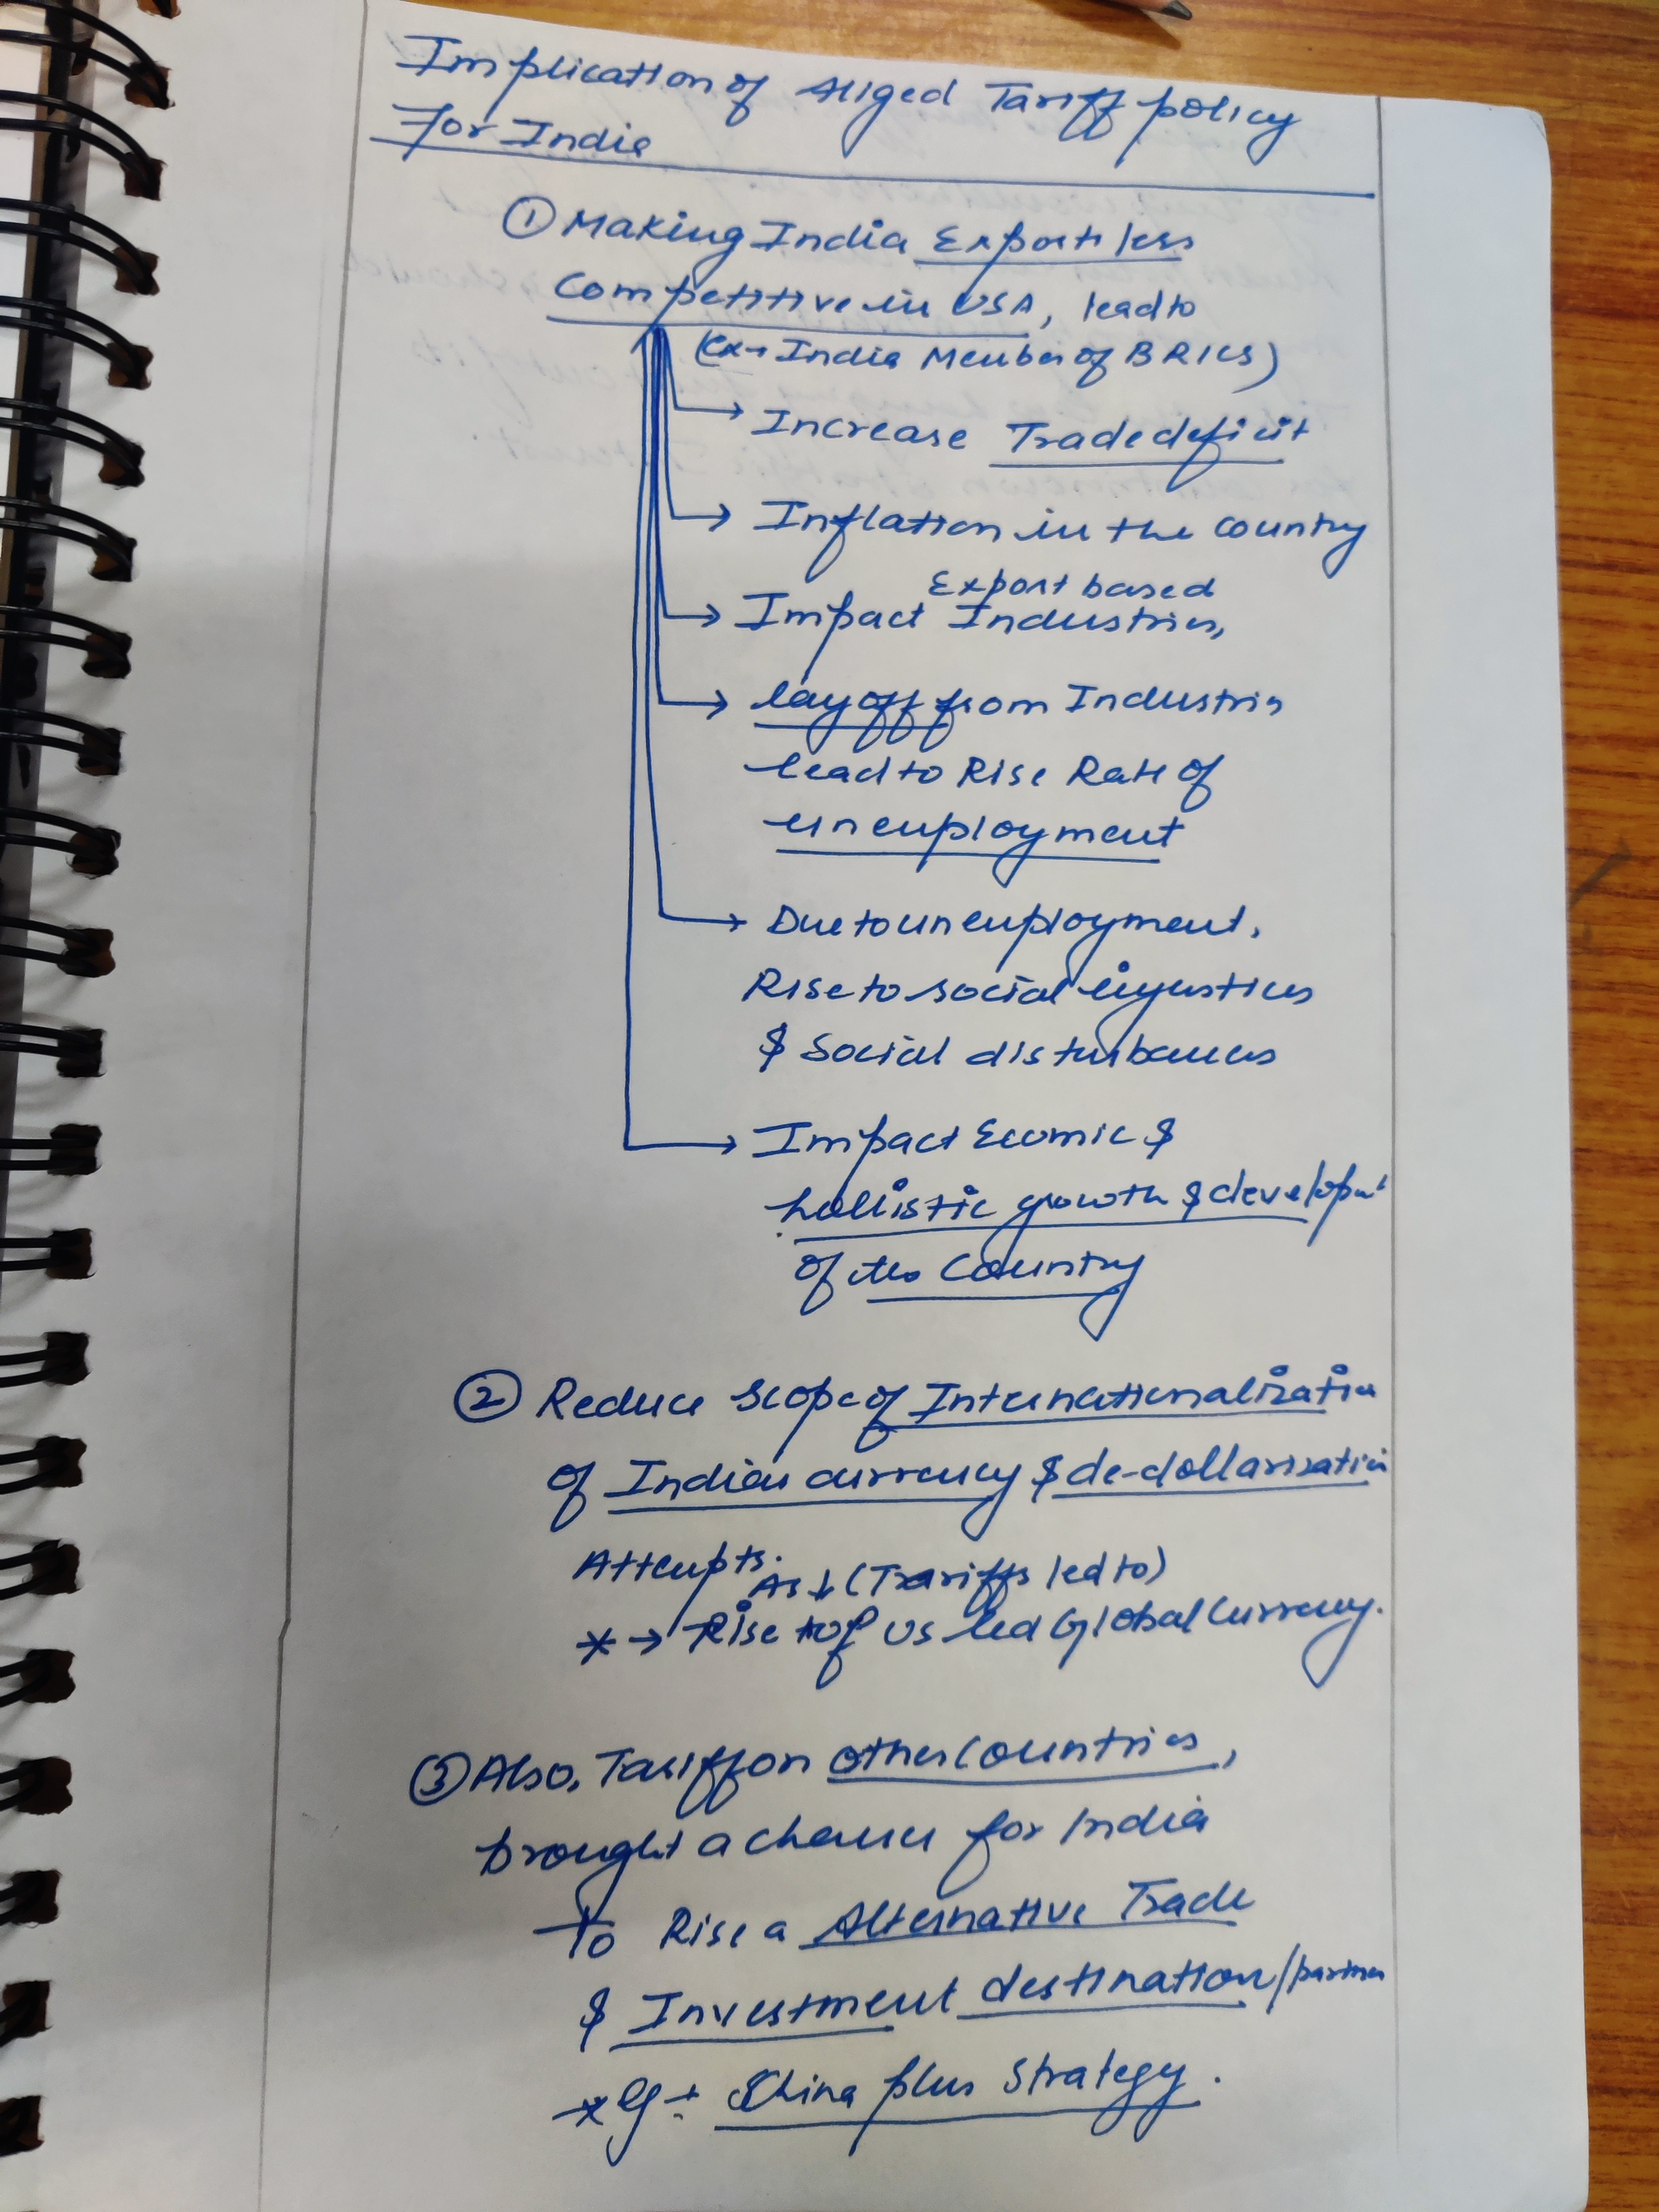 Implication of Aliged Tariff policy
For India
① Making India Exports less
Competitive in USA, lead to
(Ex → India Member of BRICS)
→ Increase Trade deficit
→ Inflation in the country
Export based
→ Impact Industries,
→ layoff from Industries
lead to Rise Rate of
unemployment
→ Due to unemployment,
Rise to social injustices
& Social disturbances
→ Impact Ecomic &
hollistic growth & development
of the Country
② Reduce scope of Internationalization
of Indian currency & de-dollarisation
Attempts.
As ↓ (Tariffs led to)
* → Rise of US led Global Currency.
③ Also, Tariff on other countries,
brought a chance for India
To Rise a Alternative Trade
& Investment destination/partner
* Eg → China plus Strategy.